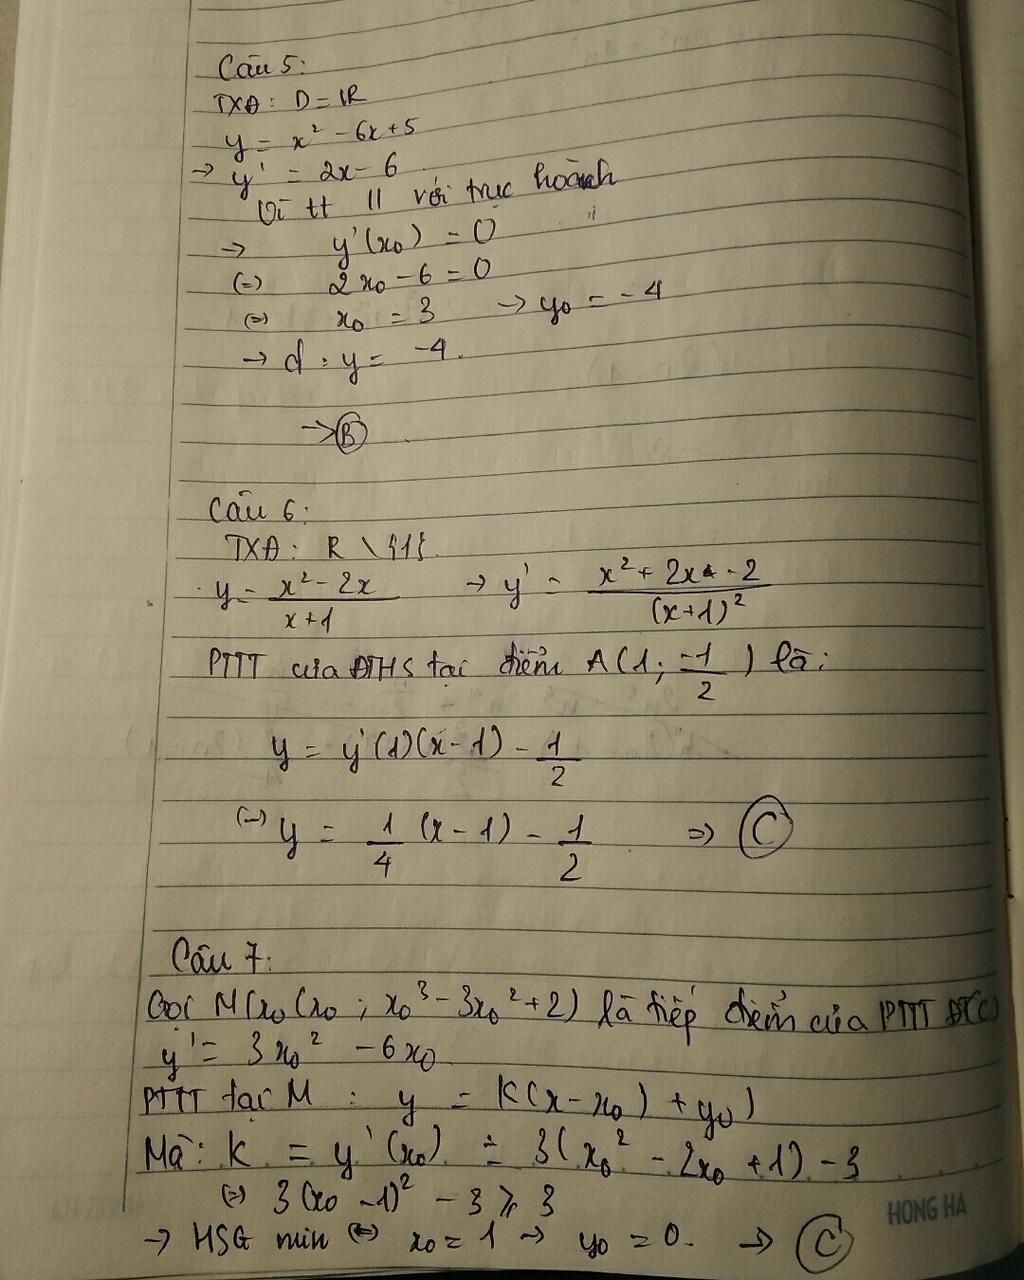 Câu 5:
TXĐ: D = IR
y = x² - 6x + 5
→ y' = 2x - 6
Vì tt // với trục hoành
→ y'(x₀) = 0
(=) 2x₀ - 6 = 0
(=) x₀ = 3 → y₀ = -4
→ d : y = -4.
→ B
Câu 6:
TXĐ: R \ {1}.
y = (x² - 2x)/(x+1) → y' = (x² + 2x - 2)/(x+1)²
PTTT của ĐTHS tại điểm A(1; -1/2) là:
y = y'(1)(x - 1) - 1/2
(=) y = 1/4 (x - 1) - 1/2 => C
Câu 7:
Gọi M(x₀(x₀ ; x₀³ - 3x₀² + 2) là tiếp điểm của PTTT ĐT(C)
y' = 3x₀² - 6x₀
PTTT tại M : y = K(x - x₀) + y₀)
Mà: K = y'(x₀) = 3(x₀² - 2x₀ + 1) - 3
(=) 3(x₀ - 1)² - 3 ⩾ 3
→ HSG min (=) x₀ = 1 → y₀ = 0. => C
HONG HA